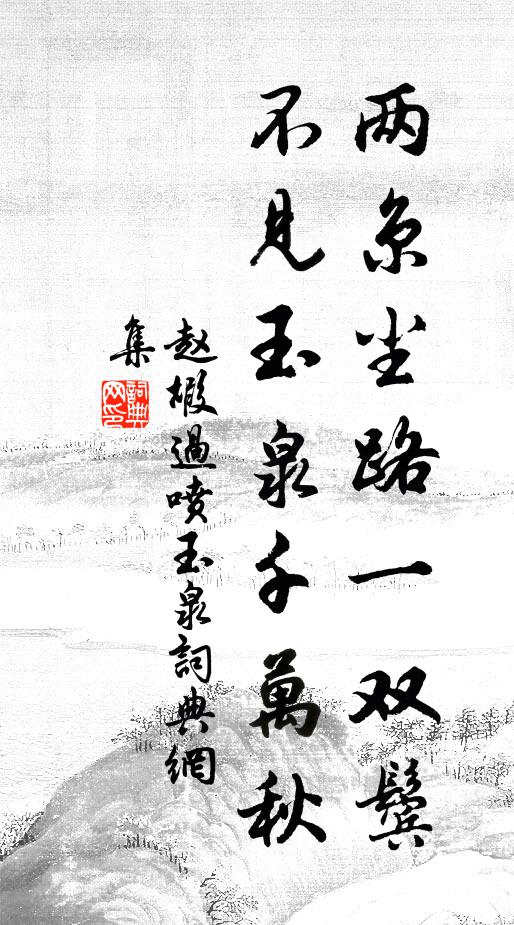 两京尘路一双鬓
不见玉泉千萬秋
赵嘏過喷玉泉詞典網
集
詞典网印